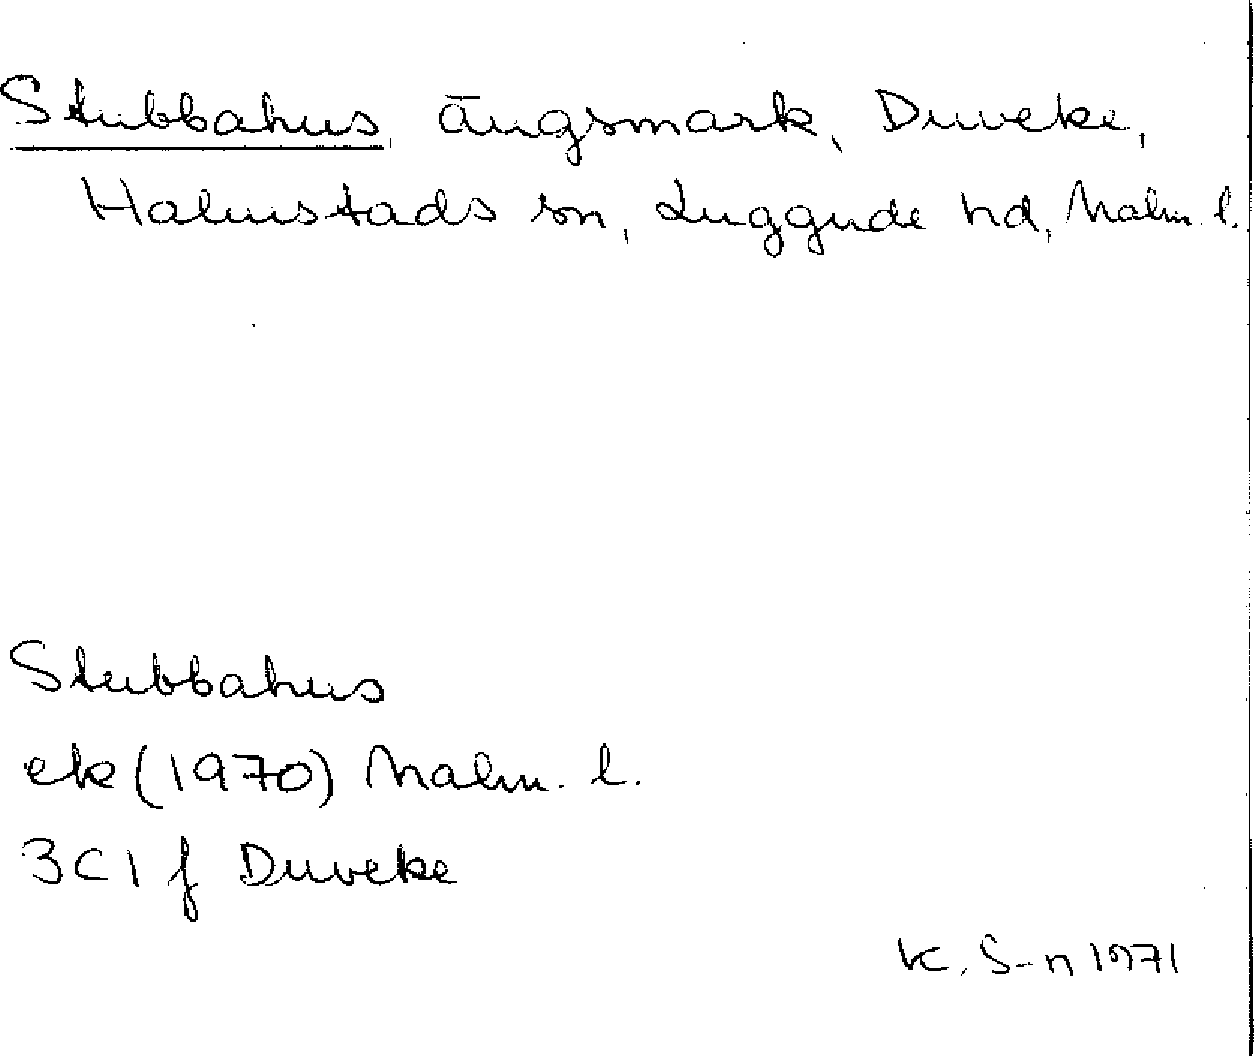 Stubbahus, ängsmark, Duveke,
Halmstads sn, Luggude hd, Malm. l.
Stubbahus
ek (1970) Malm. l.
3C1 f Duveke
K. S-n 1971